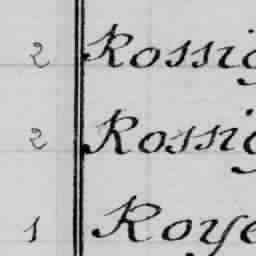 2 Rossig
2 Rossig
1 Roye